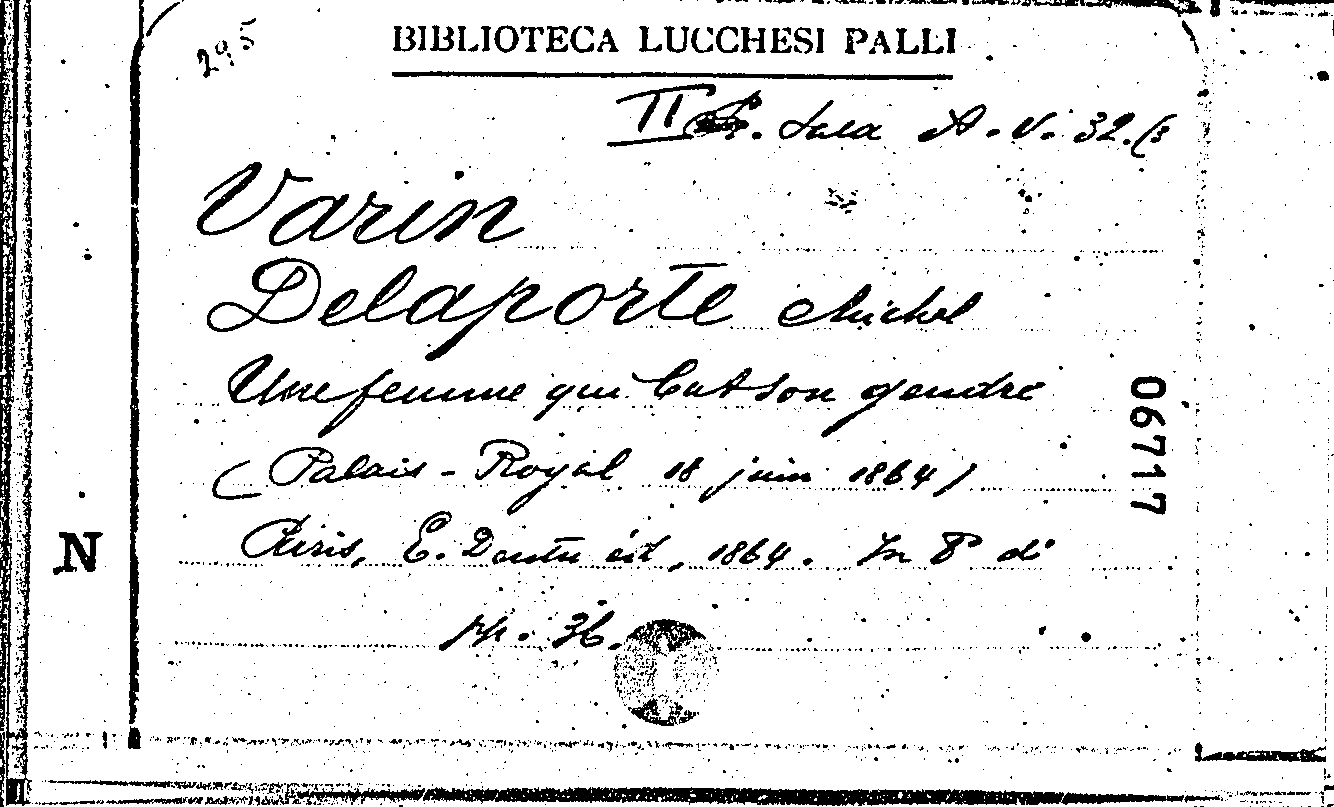 295
BIBLIOTECA LUCCHESI PALLI
II Sala A. V. 32. (3
Varin
Delaporte Michel
Une femme qui bat son gendre
(Palais-Royal 18 juin 1864)
Paris, E. Dentu éd, 1864. In 8° di
pp. 36.
06717
N